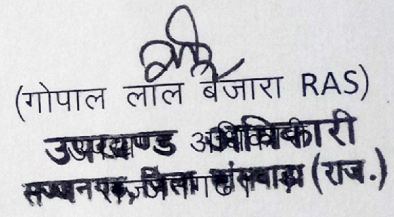 (गोपाल लाल बंजारा RAS)
उपखण्ड अधिकारी
सज्जनगढ़, जिला बांसवाड़ा (राज.)